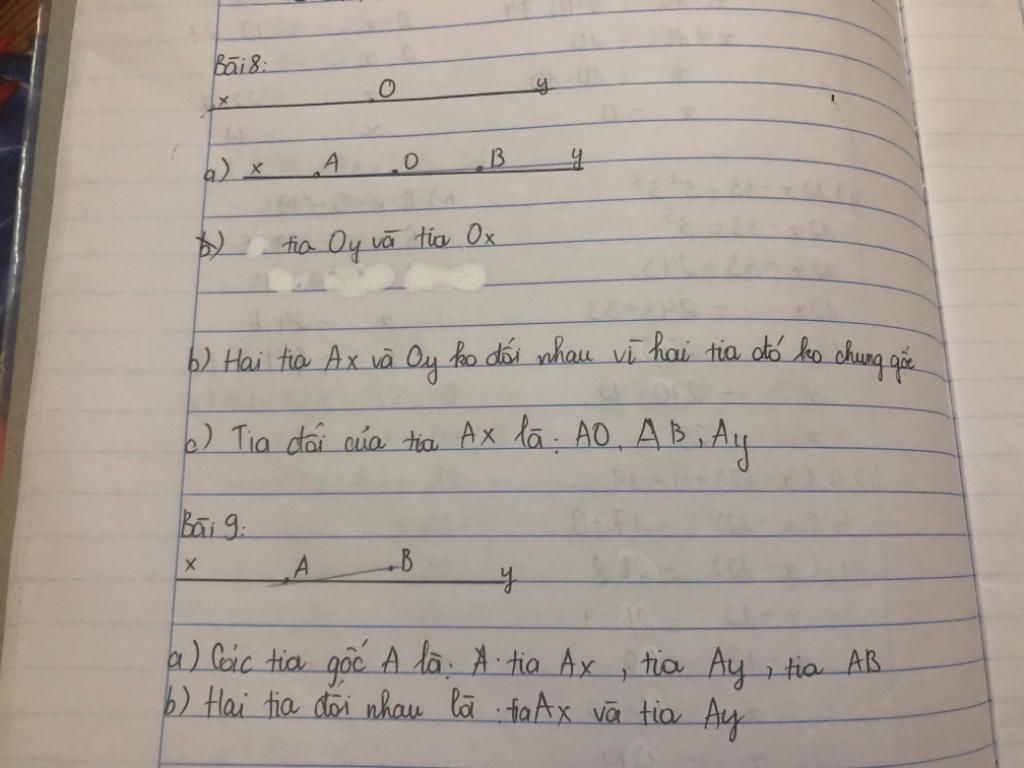 Bài 8:
x O y
a) x A O B y
b) tia Oy và tia Ox
b) Hai tia Ax và Oy ko đối nhau vì hai tia đó ko chung gốc
c) Tia đối của tia Ax là: AO, AB, Ay
Bài 9:
x A B y
a) Các tia gốc A là: A. tia Ax, tia Ay, tia AB
b) Hai tia đối nhau là: tia Ax và tia Ay